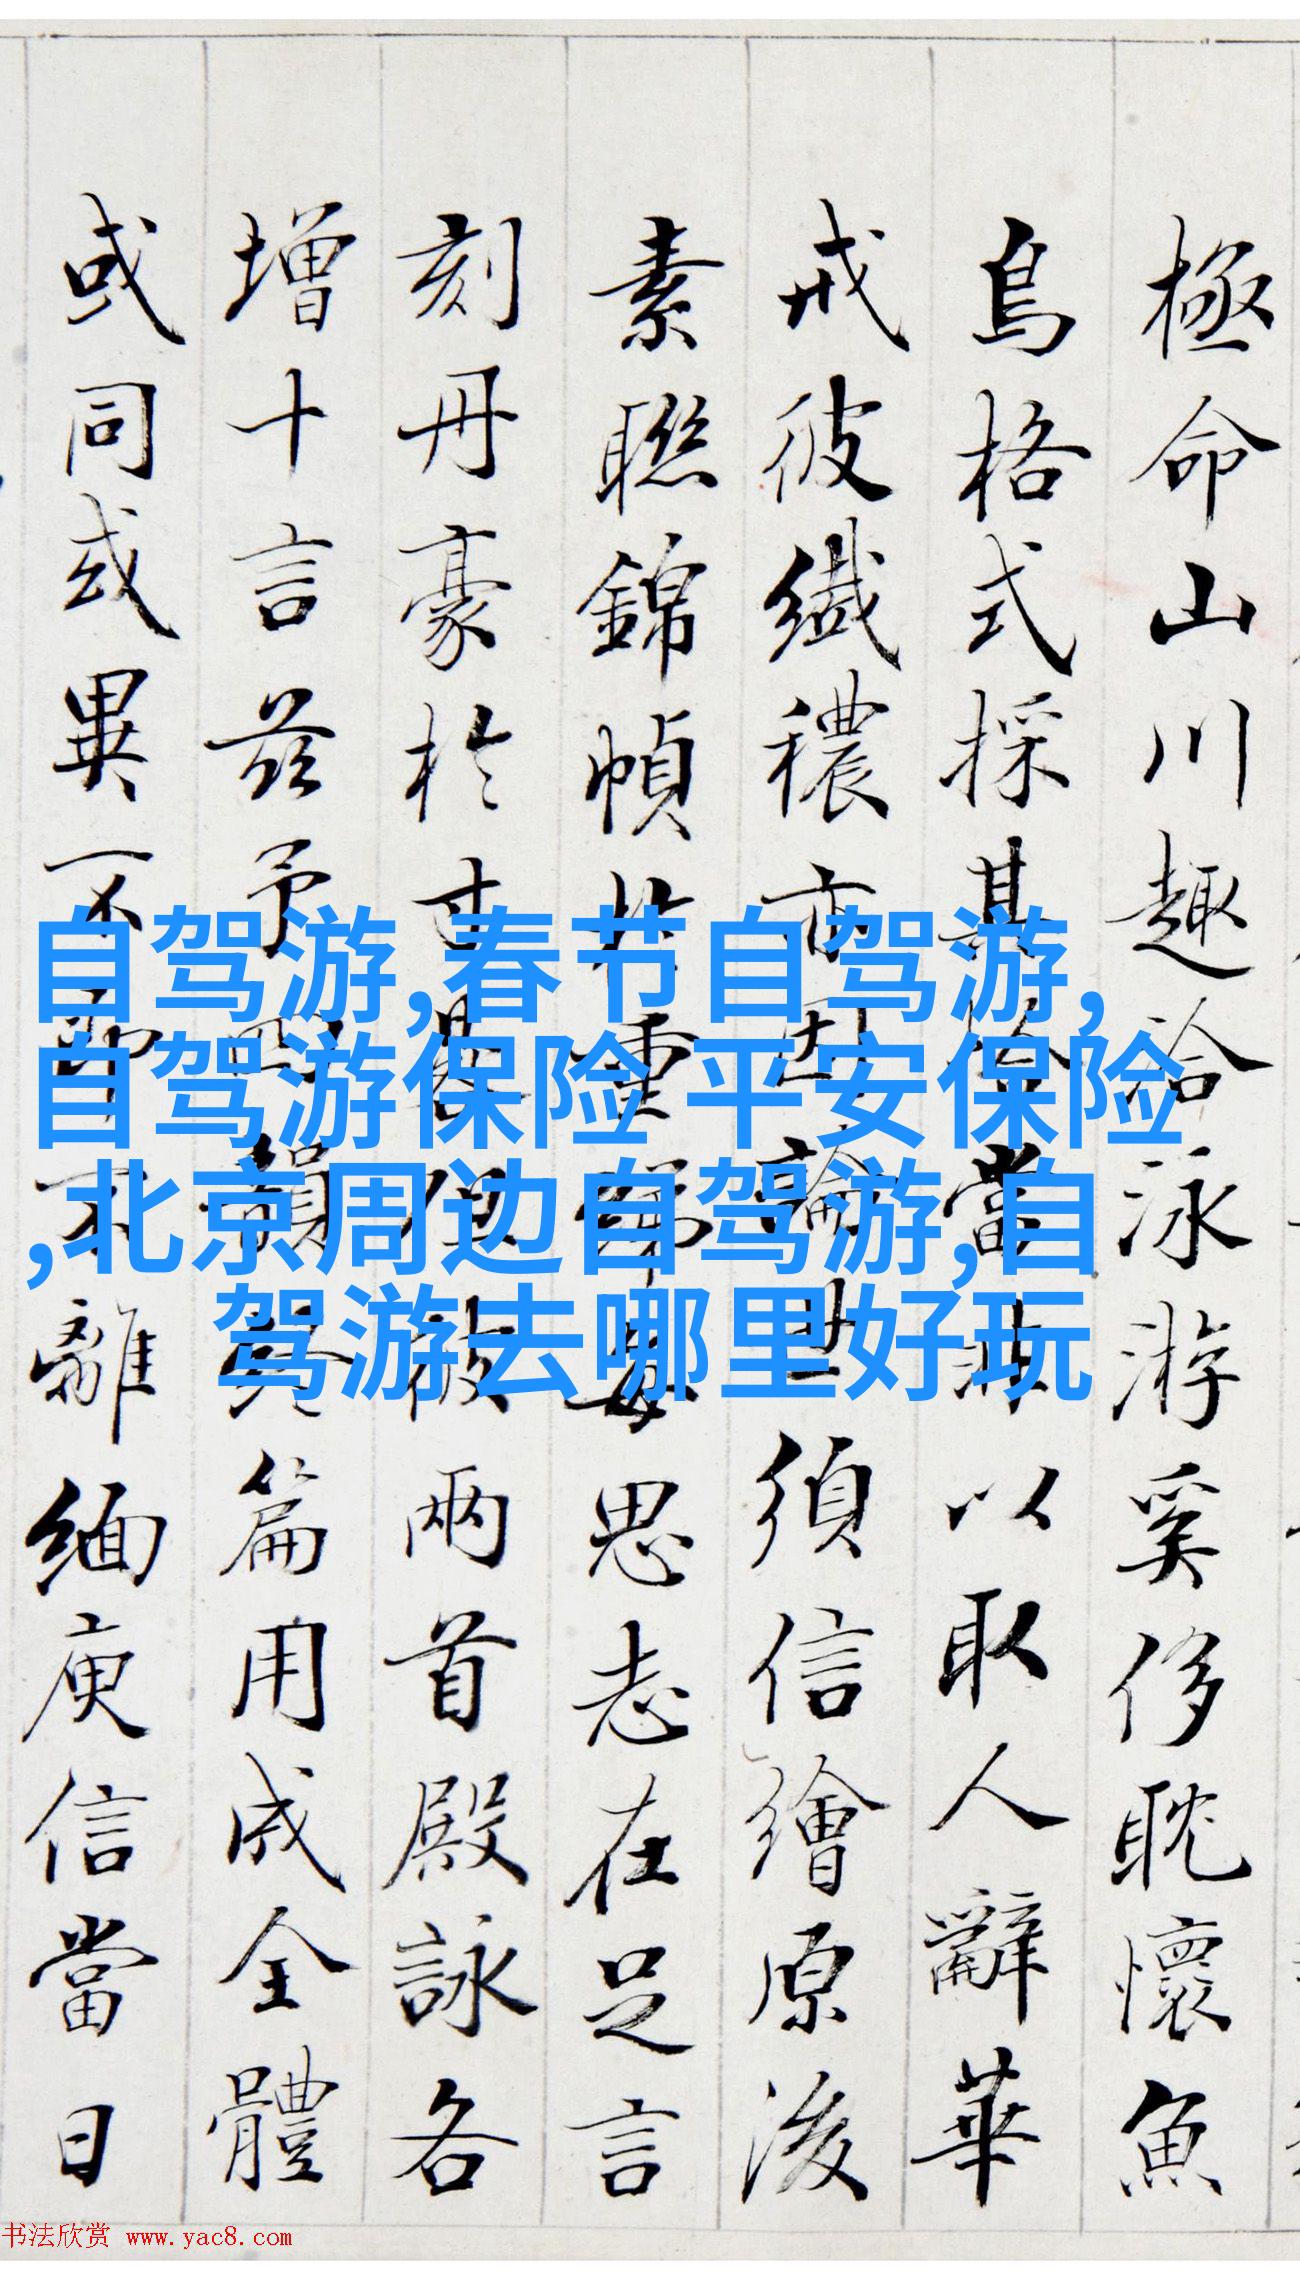 極命山川趣洽泳游奚侈耽懷魚
鳥格式採其以取人辭華
戒彼纖穠亦因論世須信繪原後
素聯錦幀思志在足言
刻丹豪於兩首殿詠各
增十言茲予篇用成全體
或同或異不離緬庾信當日
自驾游,春节自驾游,
自驾游保险 平安保险
,北京周边自驾游,自
驾游去哪里好玩
书法欣赏 www.yac8.com